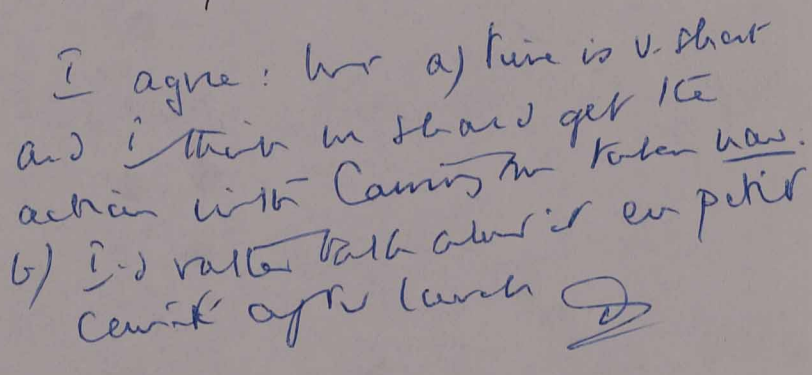 I agree: but a) time is v. short
and I think we should get the
action with Carrington taken now.
b) I'd rather talk about it en petit
comité after lunch